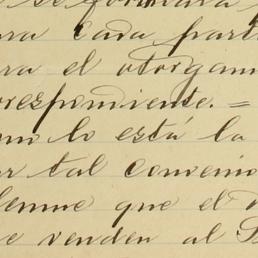 se formará
para cada part
ra el otorgam
orrespondiente. =
omo lo está la
or tal convenio
lemne que el
e venden al S